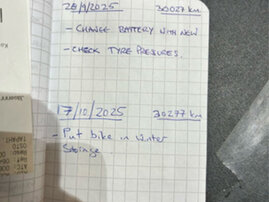 28/9/2025 30027 km
- CHANGE BATTERY WITH NEW
- CHECK TYRE PRESURES.
17/10/2025 30277 km
- Put bike in winter
Storage